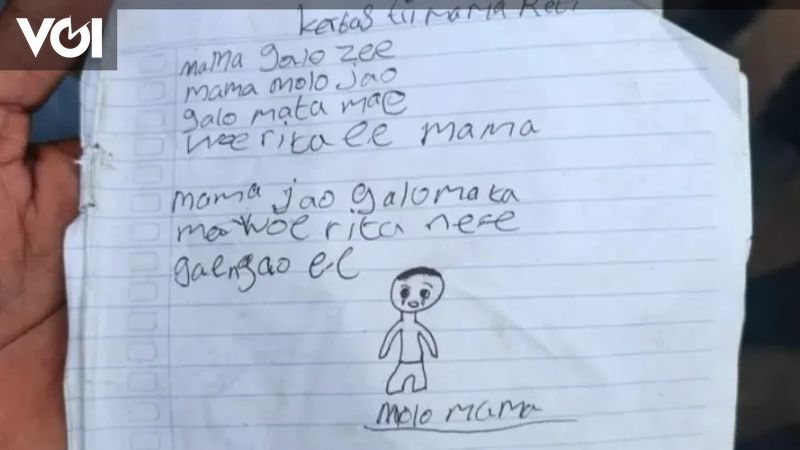 VOI
kertas tii mama Reti
mama galo zee
mama molo jao
galo mata mae
woe rita ee mama
mama jao galo mata
mae woe rita nee
gae ngao ee
molo mama